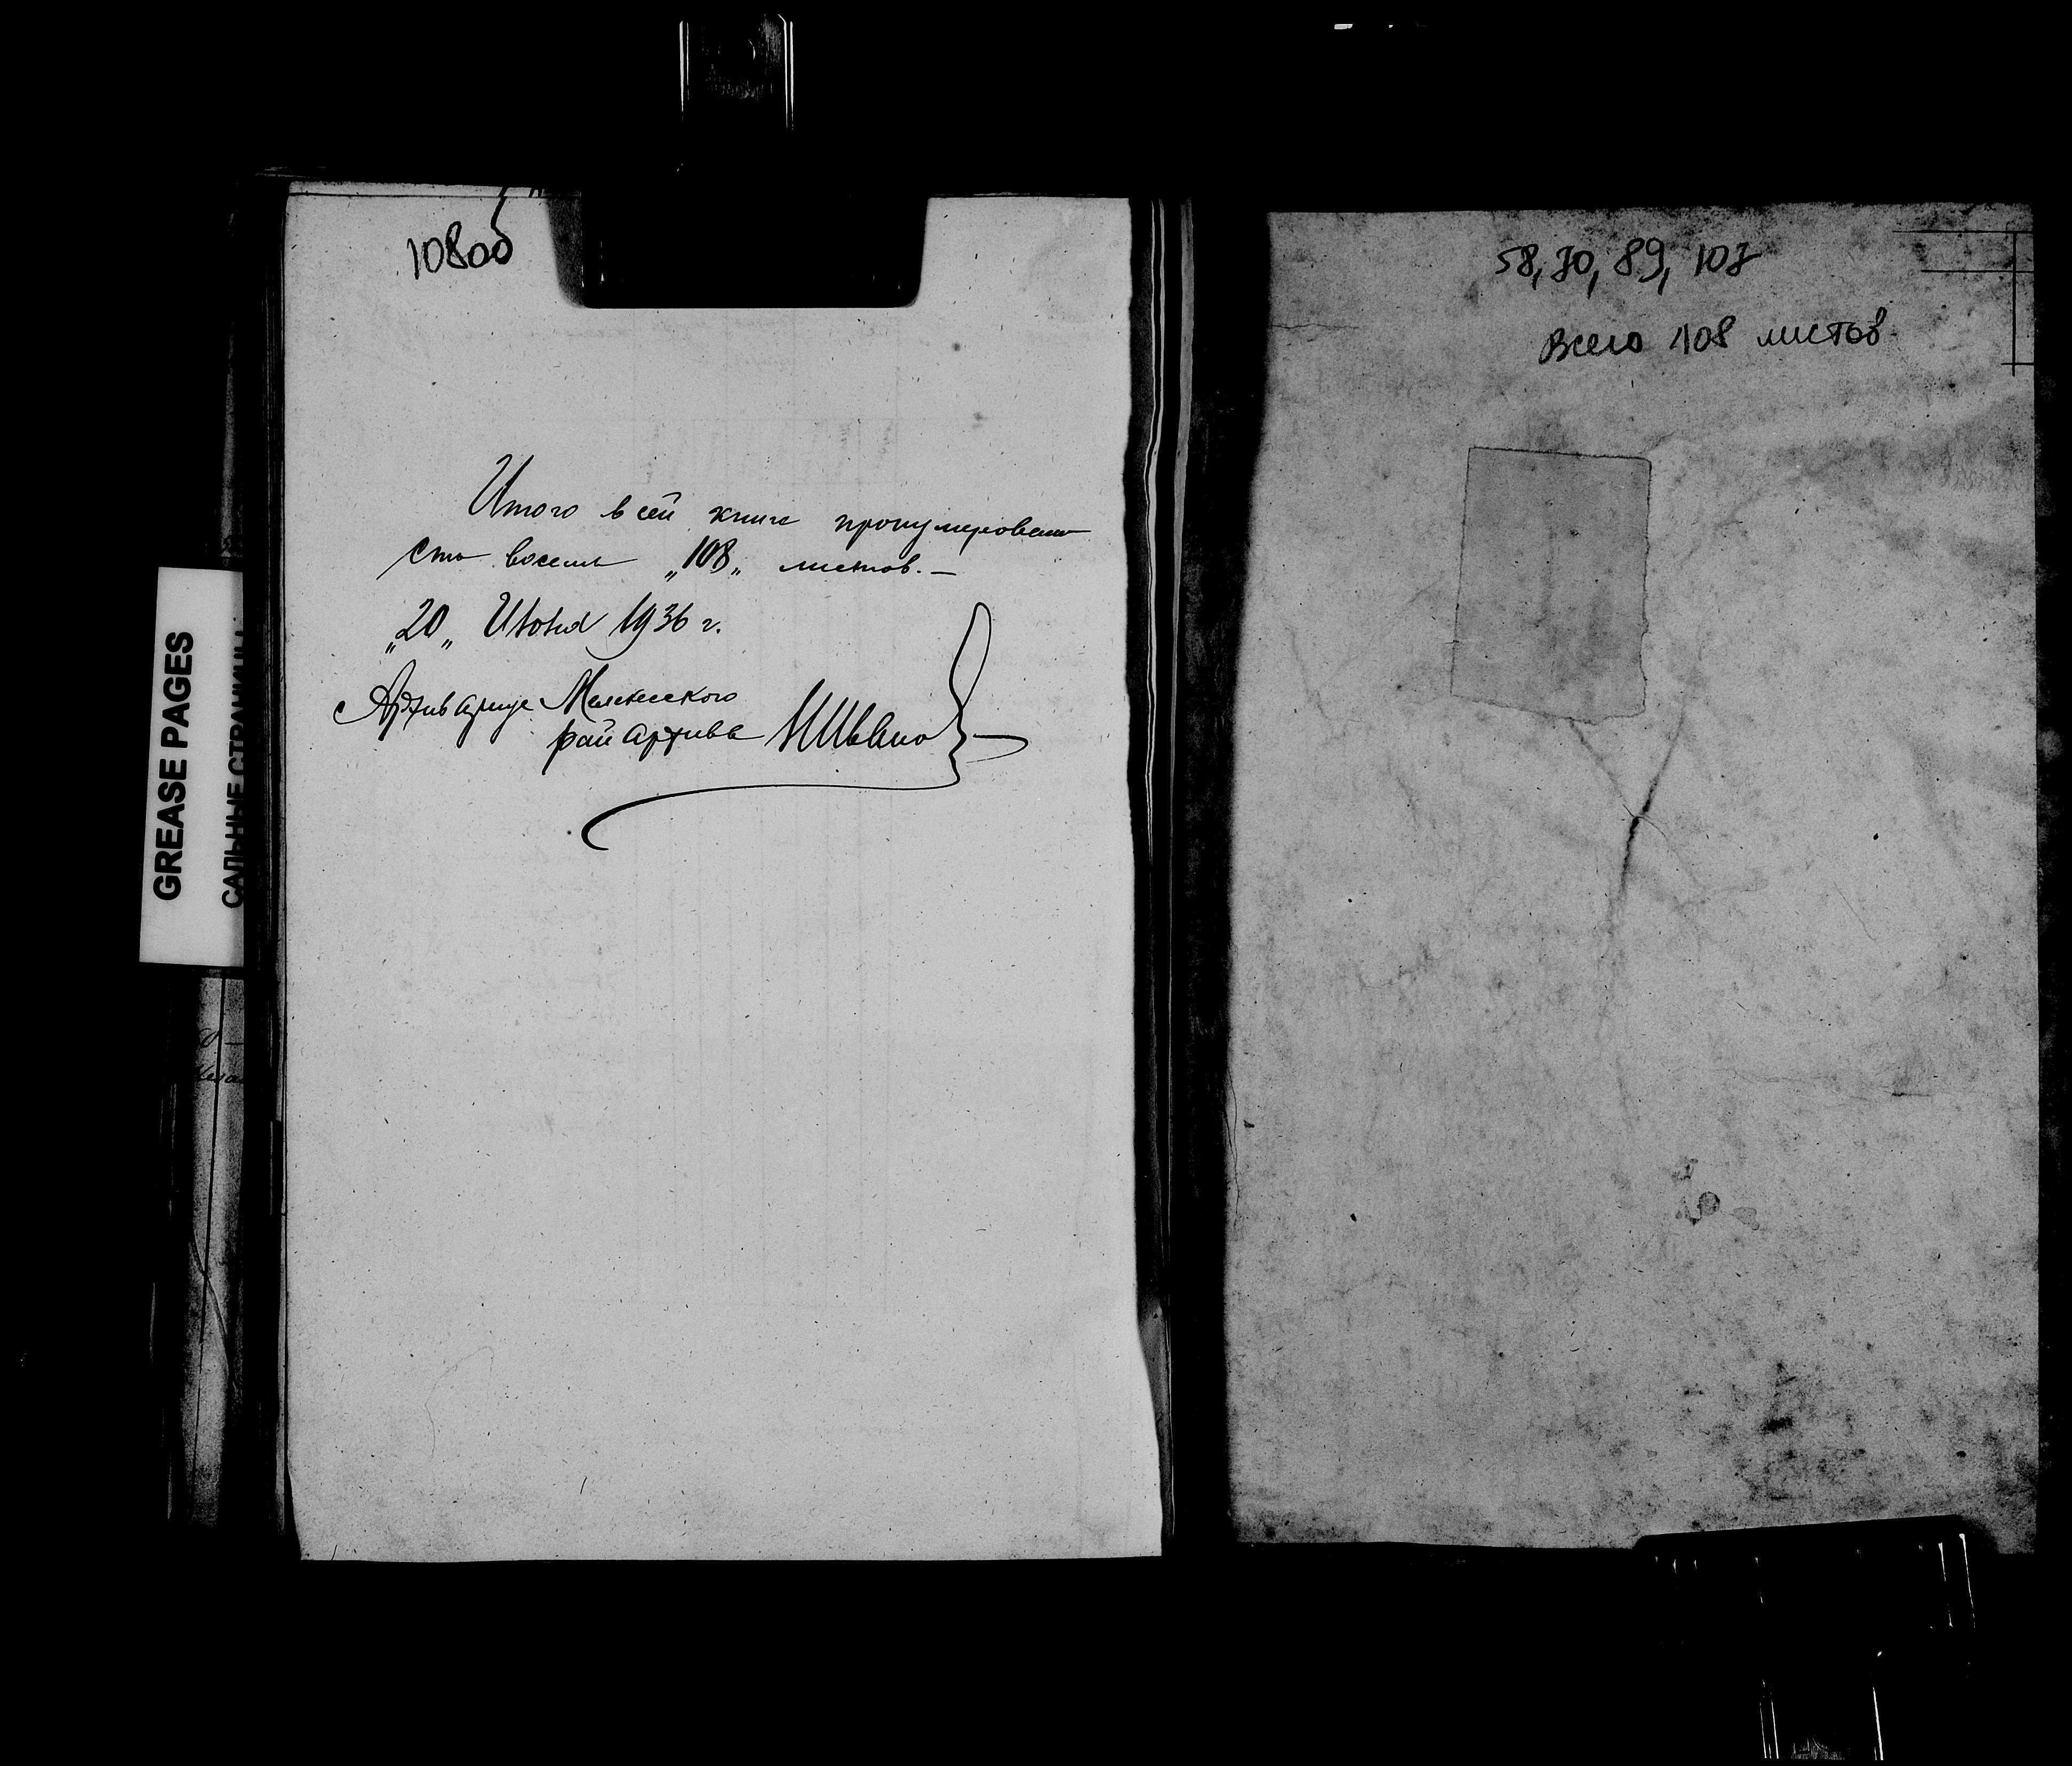 108об
Итого в сей книге пронумеровано
сто восемь „108„ листов.—
„20„ Июня 1936 г.
Архивариус Мелекесского
райархива
58, 70, 89, 107
Всего 108 листов.
GREASE PAGES
САЛЬНЫЕ СТРАНИЦЫ